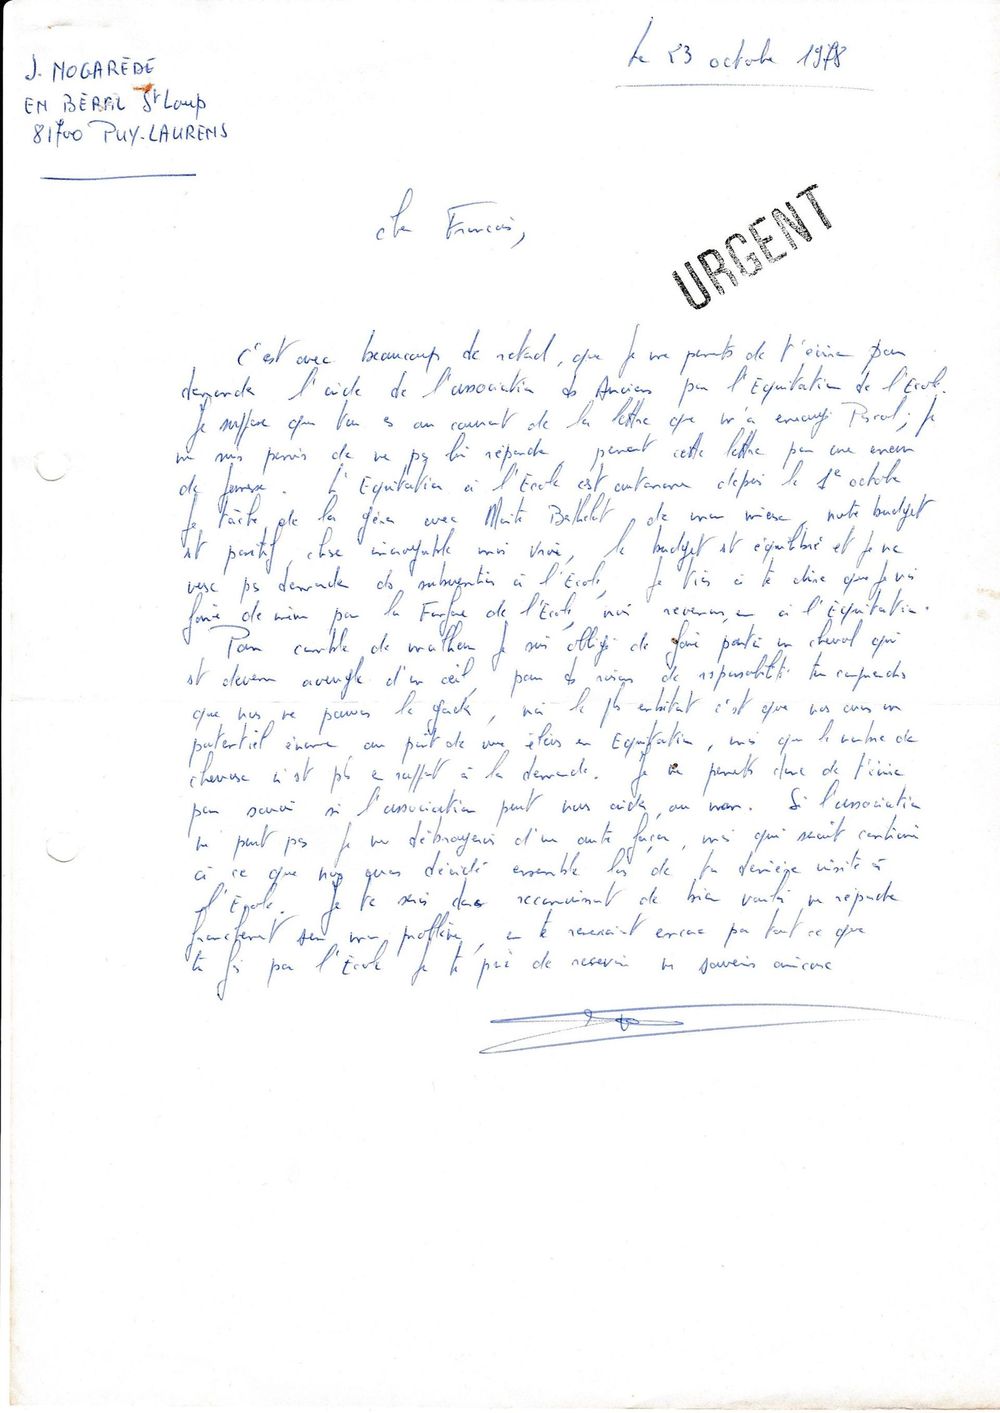 J. NOGARÈDE
EN BÉRAL St Loup
81700 PUY-LAURENS
Le 23 octobre 1978
Cher Francis,
URGENT
C'est avec beaucoup de retard, que je me permets de t'écrire pour
demander l'aide de l'association des Anciens pour l'Equitation de l'Ecole.
Je suppose que tu es au courant de la lettre que m'a envoyé Pascal ; je
me suis permis de ne pas lui répondre, prenant cette lettre pour une erreur
de jeunesse. L'Equitation à l'Ecole est autonome depuis le 1er octobre
Je tâche de la gérer avec Maïté de mon mieux, notre budget
est positif, chose incroyable mais vraie, le budget est équilibré et je ne
veux pas demander des subventions à l'Ecole, Je tiens à te dire que je vais
faire de même pour la de l'Ecole, mais revenons en à l'Equitation.
Pour comble de malheur je suis obligé de faire partir un cheval qui
est devenu aveugle d'un œil, pour des raisons de responsabilité tu comprendras
que nous ne pouvons le garder, mais le plus embêtant c'est que nous avons un
potentiel énorme au point de vue élèves en Equitation, mais que le nombre de
chevaux n'est pas en rapport à la demande. Je me permets donc de t'écrire
pour savoir si l'association peut nous aider, ou non. Si l'association
ne peut pas je me débrouillerai d'une autre façon, mais qui serait contraire
à ce que nous avons décidé ensemble lors de ta dernière visite à
l'Ecole. Je te serais donc reconnaissant de bien vouloir me répondre
franchement sur mon problème, en te remerciant encore pour tout ce que
tu fais pour l'Ecole Je te prie de recevoir mes souvenirs amicaux